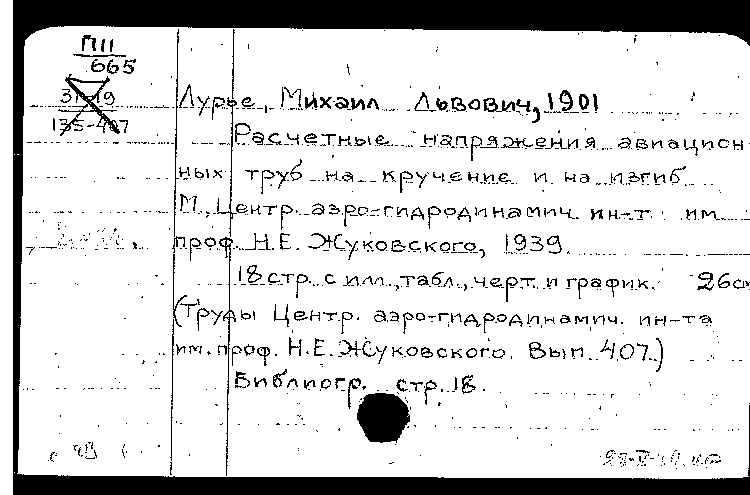 П11
665
31-19
135-407
Лурье, Михаил Львович, 1901
Расчетные напряжения авиацион
ных труб на кручение и на изгиб
М., Центр. аэро-гидродинамич. ин-т им.
проф. Н.Е. Жуковского, 1939.
18 стр. с илл., табл., черт. и график. 26см
(Труды Центр. аэро-гидродинамич. ин-та
им. проф. Н.Е. Жуковского. Вып. 407.)
Библиогр. стр. 18.